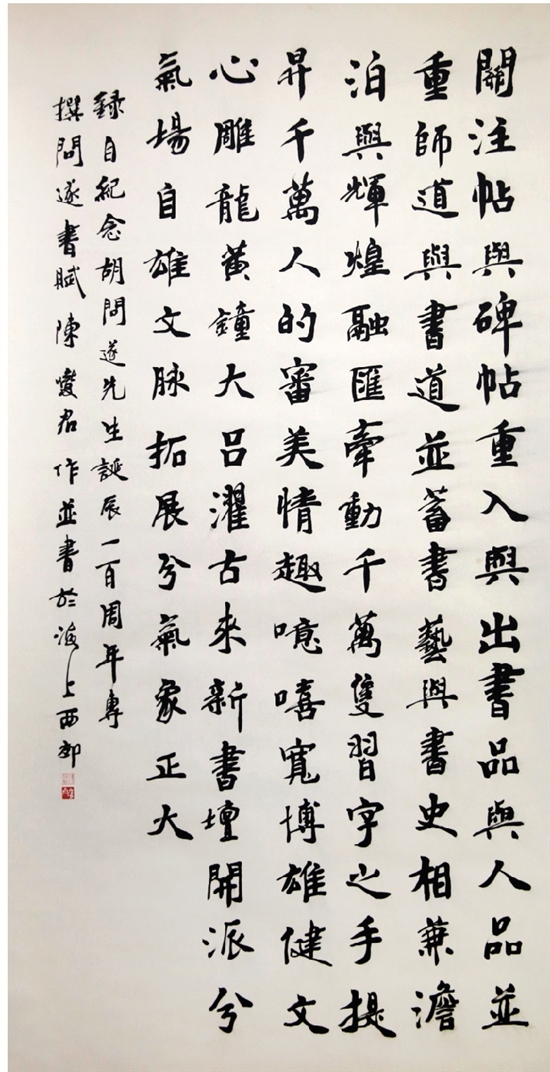 關注帖與碑帖重入與出書品與人品並
重師道與書道並蓄書藝與書史相兼澹
泊與輝煌融匯牽動千萬隻習字之手提
昇千萬人的審美情趣噫嘻寬博雄健文
心雕龍黃鐘大呂濯古來新書壇開派兮
氣場自雄文脉拓展兮氣象正大
錄自紀念胡問遂先生誕辰一百周年專
撰問遂書賦陳燮君作並書於海上西郊